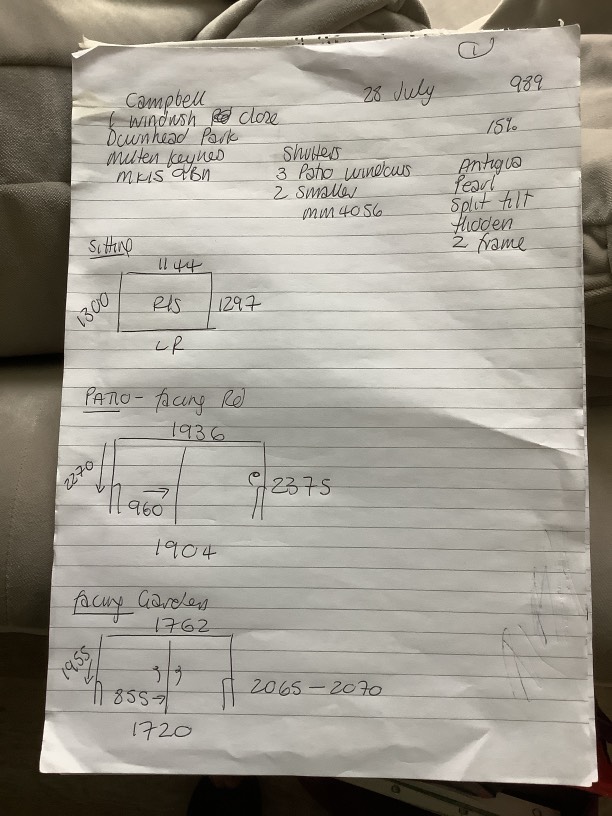 1
Campbell 28 July 989
6 Windrush Close
Downhead Park 15%
Milten Keynes Shutters Antigua
MK15 9BN 3 Patio windows Pearl
2 Smaller Split tilt
mm4056 Hidden
2 frame
Sitting
1144
1300 R/S 1297
LR
PATIO - facing Rd
1936
2270 2375
960
1904
facing Garden
1762
1955
855 2065 - 2070
1720